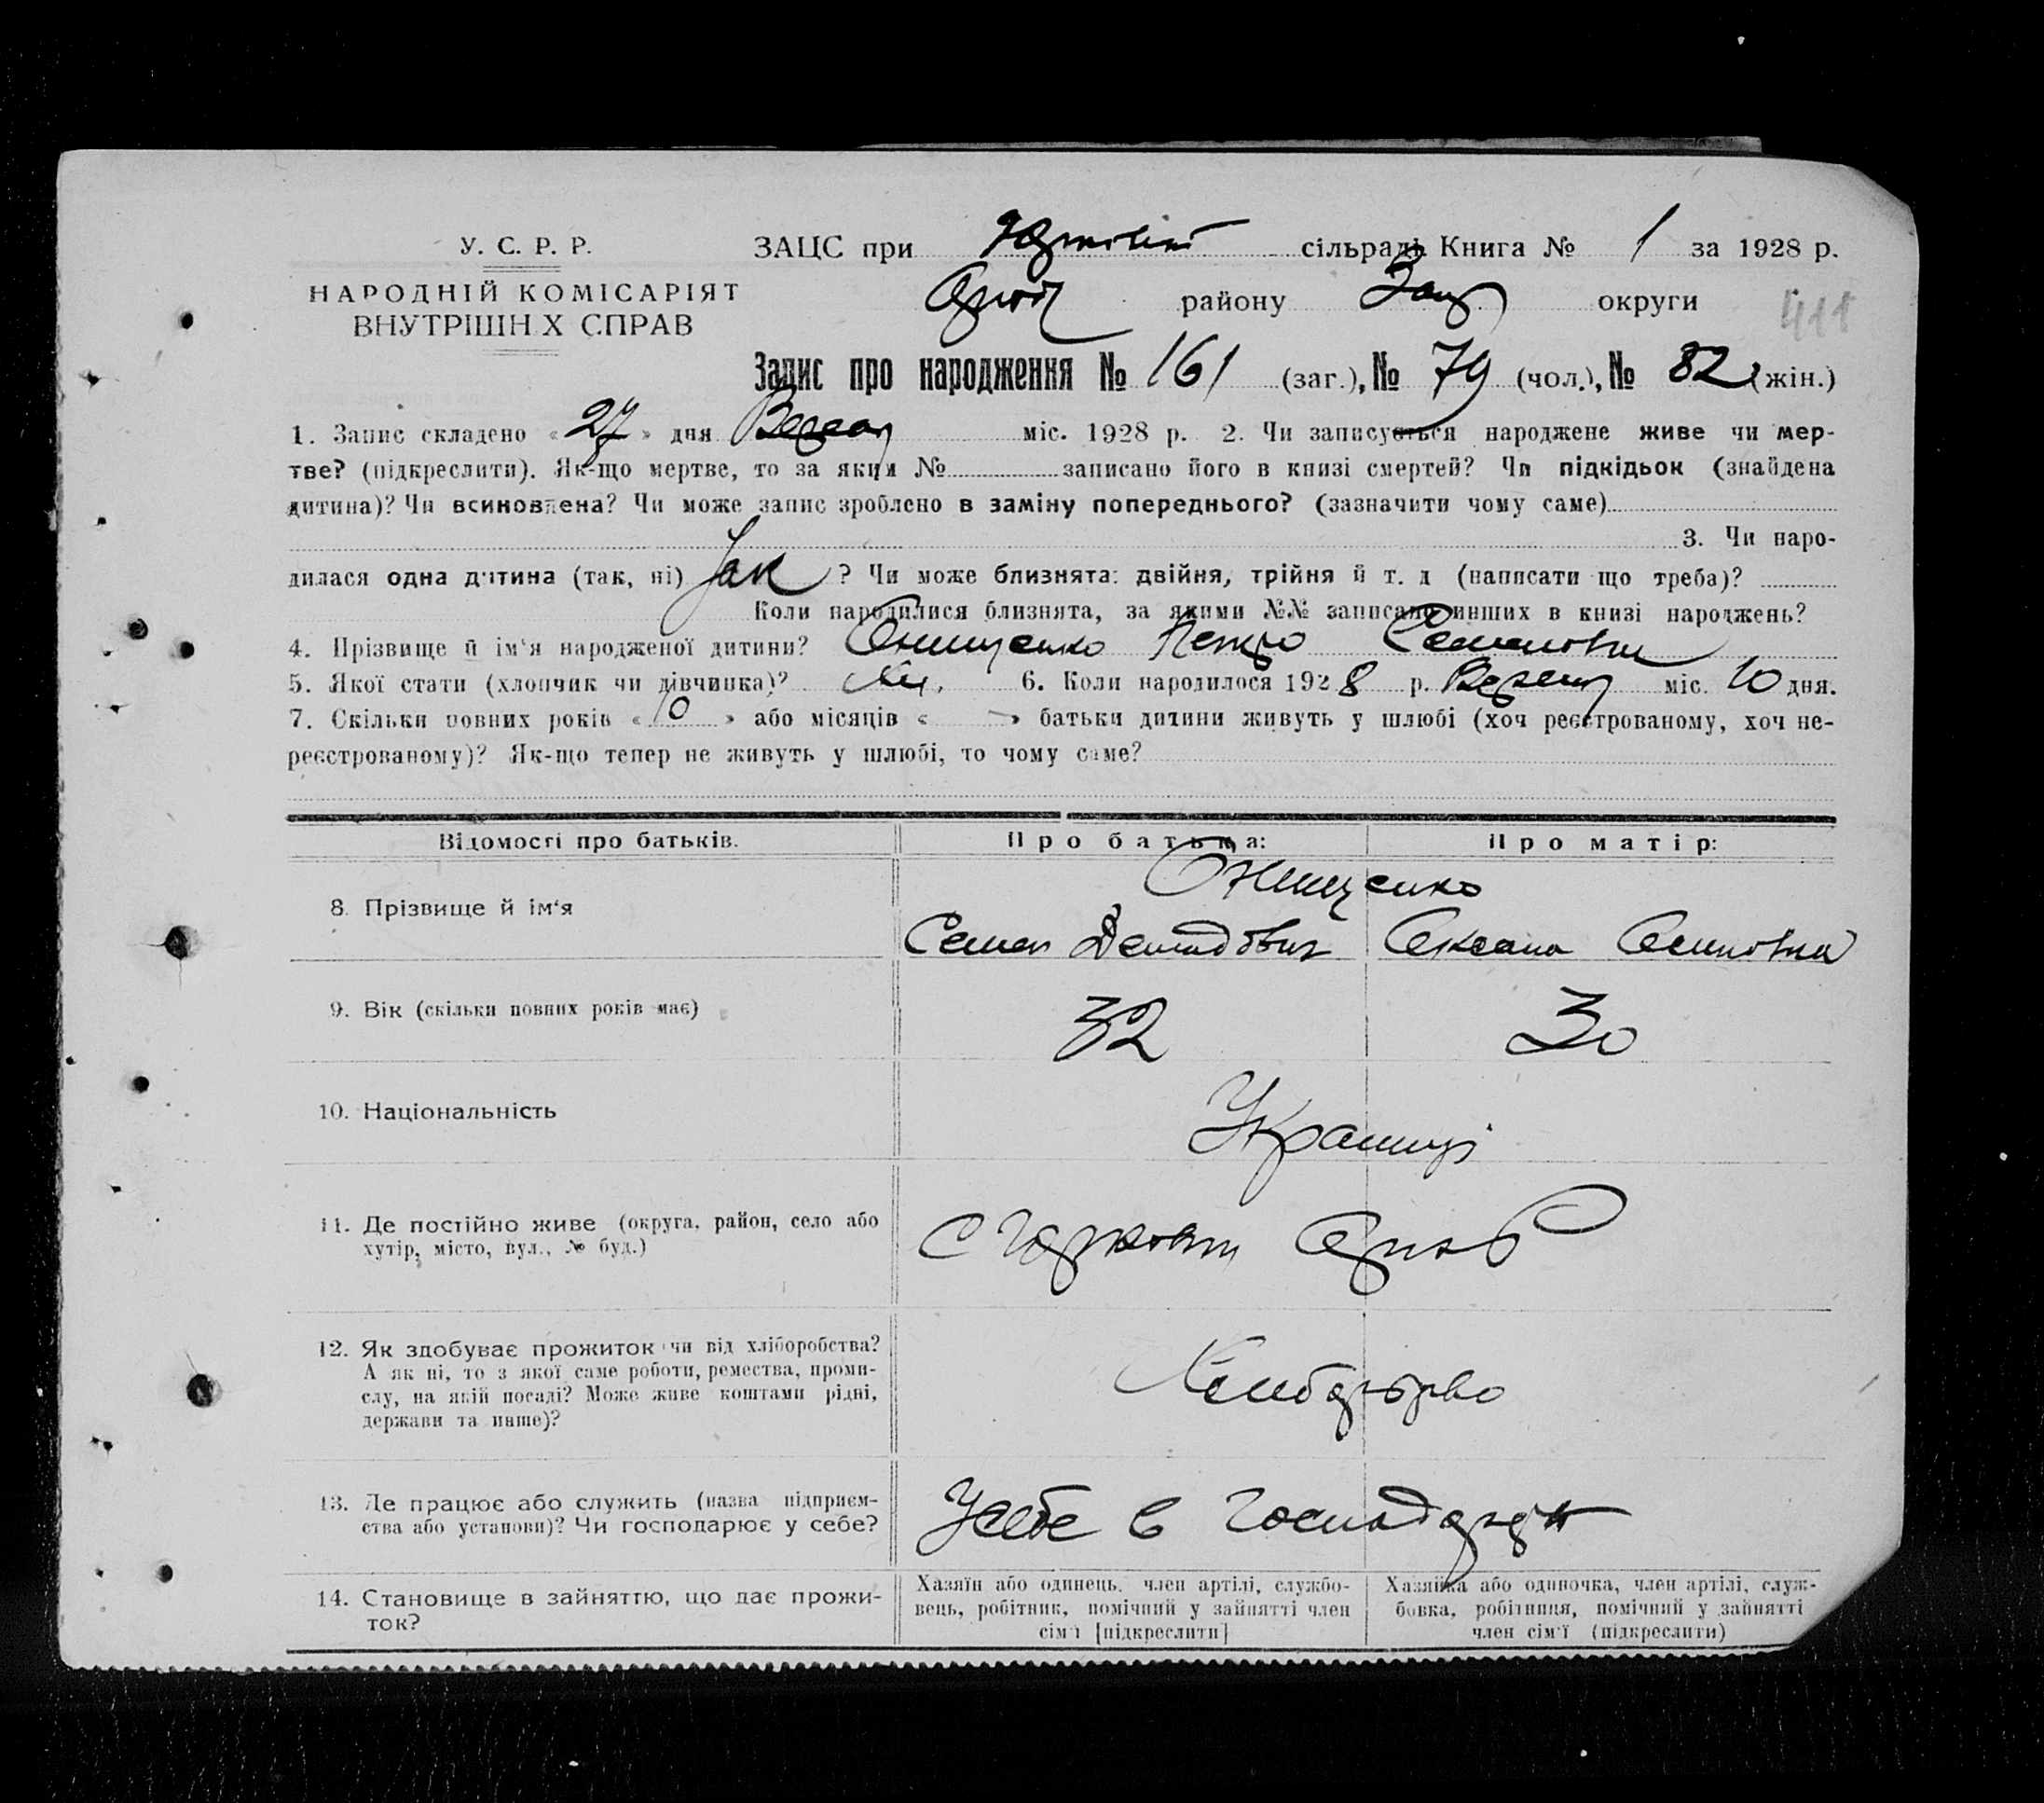 У. С. Р. Р.
НАРОДНІЙ КОМІСАРІЯТ
ВНУТРІШН Х СПРАВ
ЗАЦС при сільраді Книга № 1 за 1928 р.
району Зап округи
411
Запис про народження № 161 (заг.), № 79 (чол.), № 82 (жін.)
1. Запис складено « 27 » дня Верес міс. 1928 р. 2. Чи записується народжене живе чи мер-
тве? (підкреслити). Як-що мертве, то за яким № записано його в книзі смертей? Чи підкідьок (знайдена
дитина)? Чи всиновлена? Чи може запис зроблено в заміну попереднього? (зазначити чому саме)
3. Чи наро-
дилася одна дитина (так, ні) Так ? Чи може близнята: двійня, трійня й т. д (написати що треба)?
Коли народилися близнята, за якими №№ записано инших в книзі народжень?
4. Прізвище й ім'я народженої дитини? Онищенко Петро Семенович
5. Якої стати (хлопчик чи дівчинка)? Хл. 6. Коли народилося 1928 р. Верес міс. 10 дня.
7. Скільки повних років « 10 » або місяців « » батьки дитини живуть у шлюбі (хоч реєстрованому, хоч не-
реєстрованому)? Як-що тепер не живуть у шлюбі, то чому саме?
Відомості про батьків. Про батька: Про матір:
8. Прізвище й ім'я Онищенко
Семен Демидович Оксана Осиповна
9. Вік (скільки повних років має) 32 30
10. Національність Українці
11. Де постійно живе (округа, район, село або
хутір, місто, вул., № буд.)
12. Як здобуває прожиток чи від хліборобства?
А як ні, то з якої саме роботи, ремества, проми-
слу, на якій посаді? Може живе коштами рідні,
держави та инше)?
Хліборобство
13. Де працює або служить (назва підприєм-
ства або установи)? Чи господарює у себе?
У себе в господарстві
14. Становище в зайняттю, що дає прожи-
ток?
Хазяїн або одинець, член артілі, службо-
вець, робітник, помічний у зайнятті член
сім'ї [підкреслити]
Хазяйка або одиночка, член артілі, служ-
бовка, робітниця, помічний у зайнятті
член сім'ї (підкреслити)